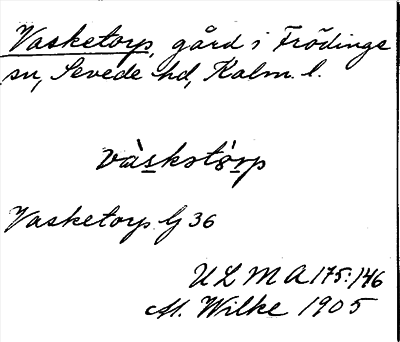 Vasketorp, gård i Frödinge
sn, Sevede hd, Kalm. l.
vàskstò̀rp
Vasketorp Gj 36
ULMA 175:146
M. Wilke 1905